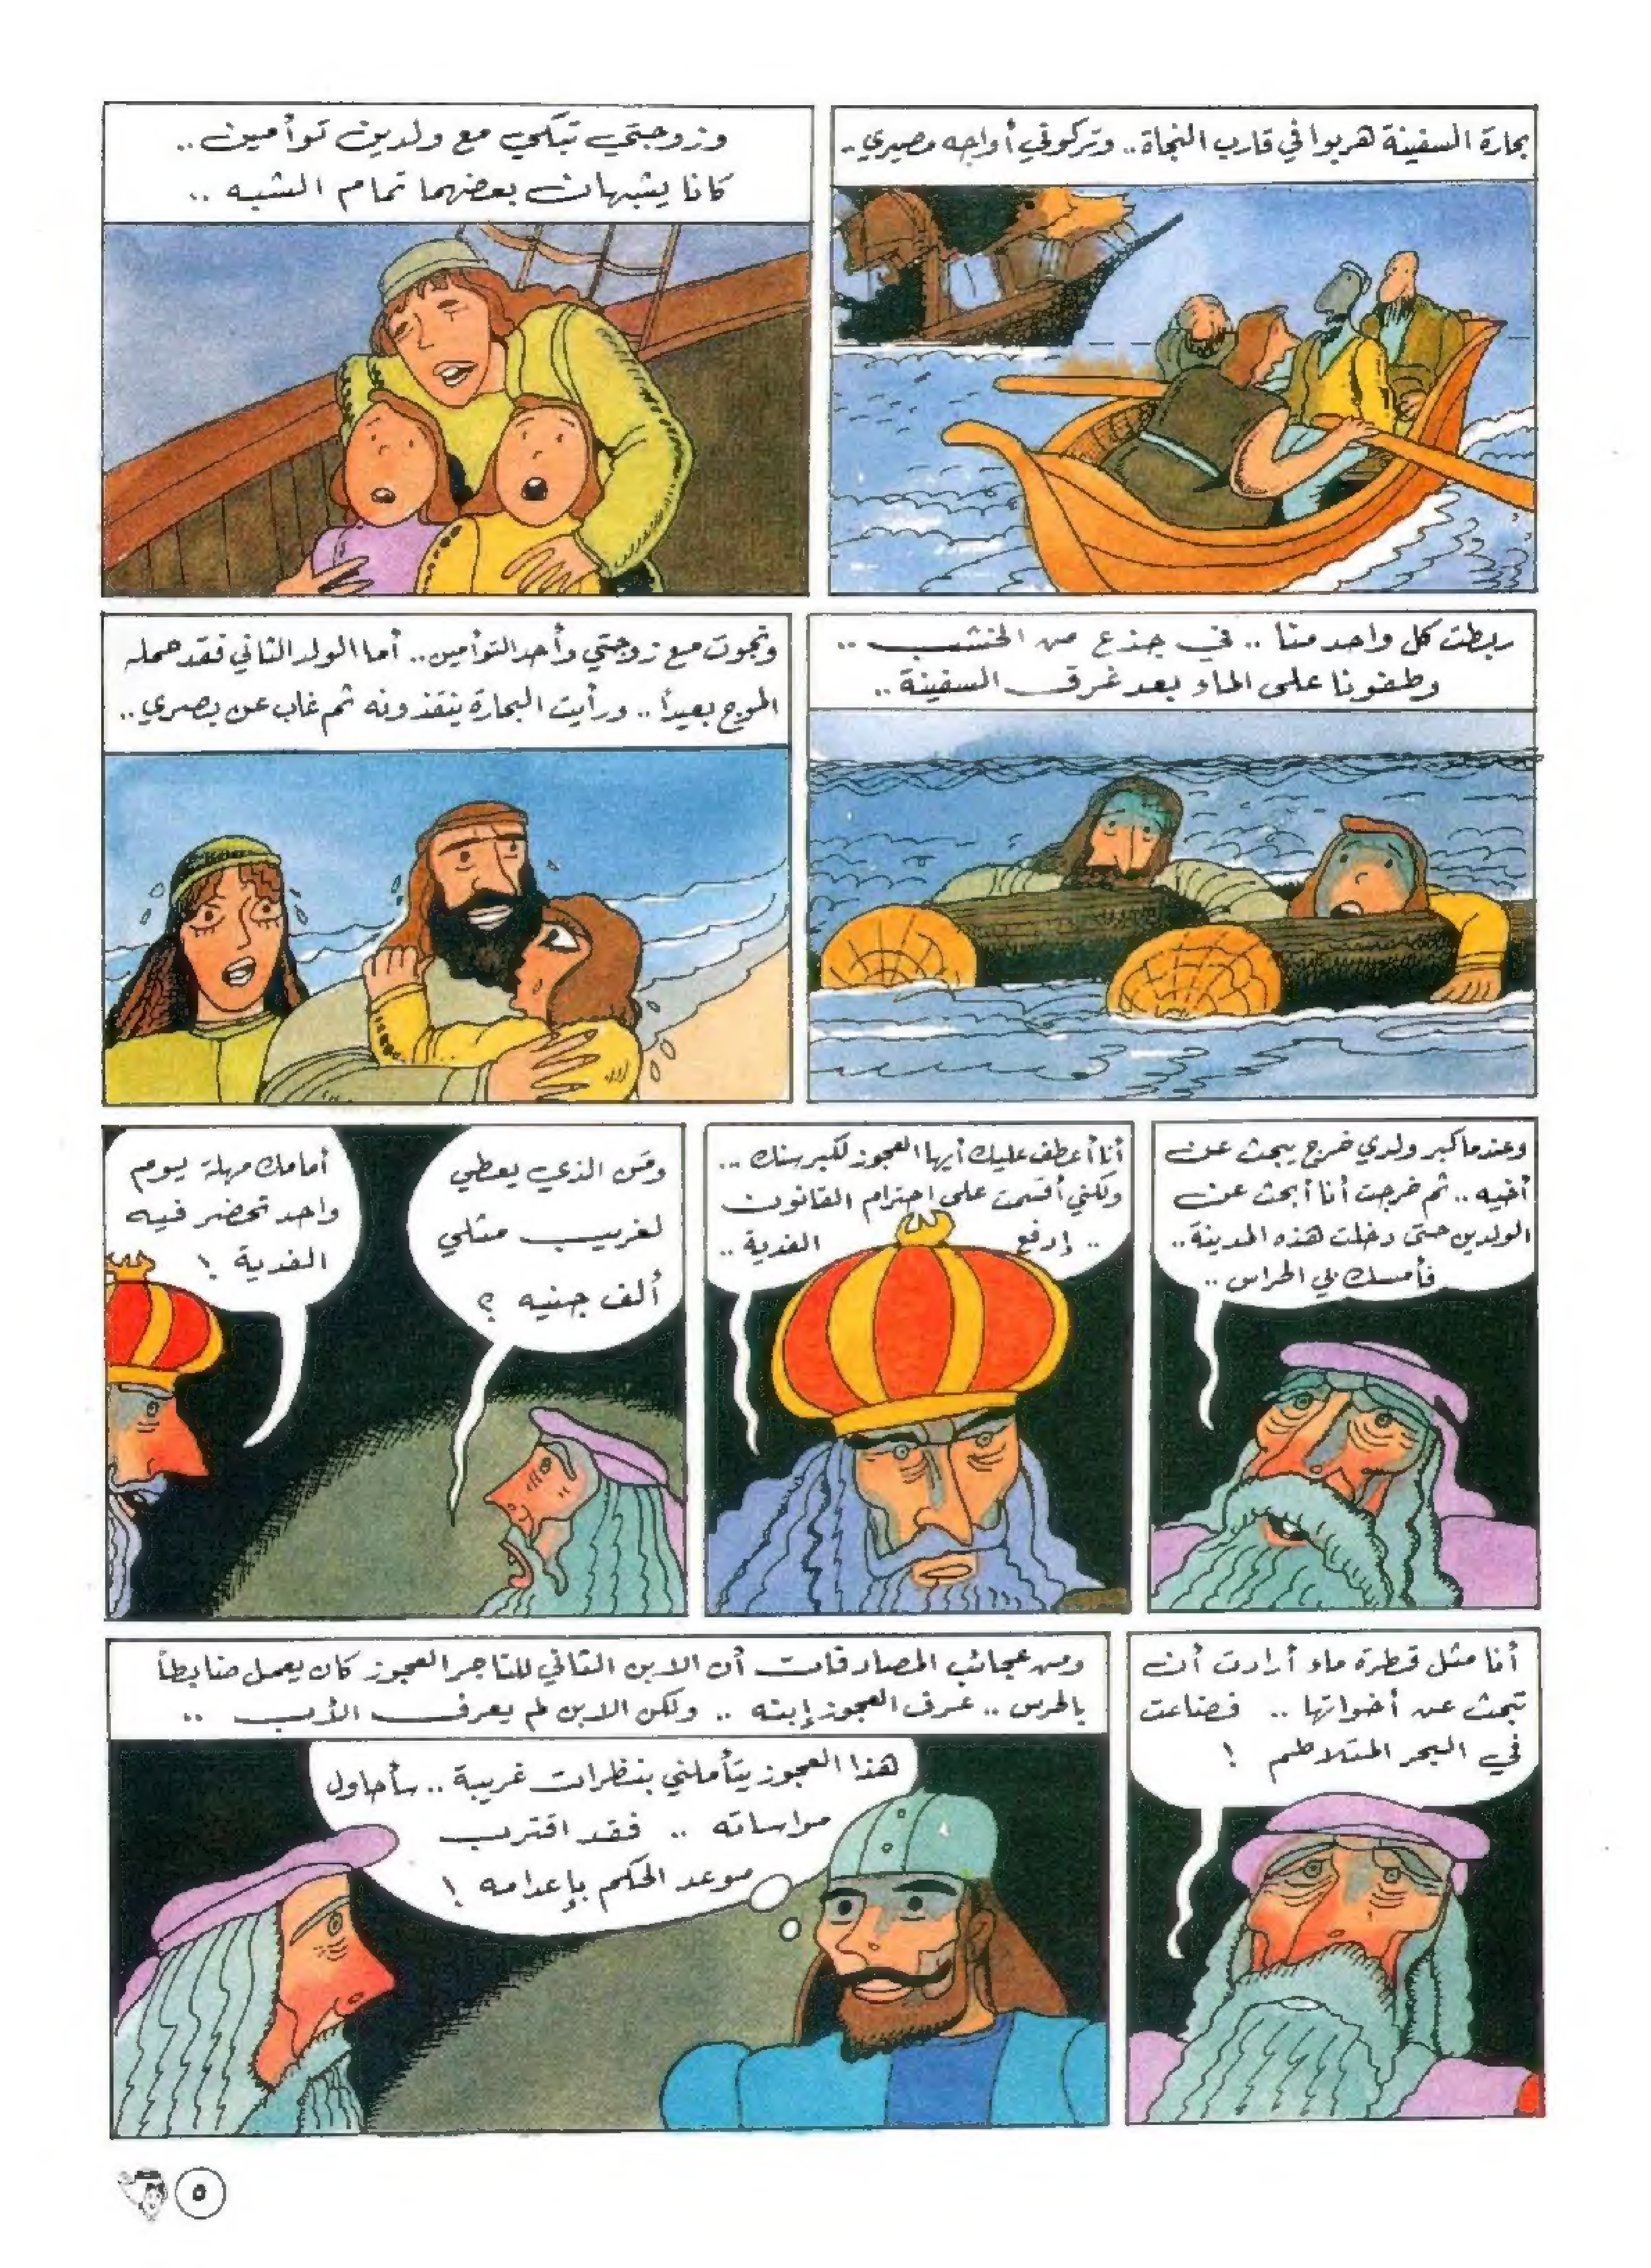 بحارة السفينة هربوا في قارب النجاة.. وتركوني أواجه مصيري..
وزوجتي تبكي مع ولدين توأمين..
كانا يشبهان بعضهما تمام الشبه ..
ربطت كل واحد منا .. في جذع من الخشب ..
وطفونا على الماء بعد غرق السفينة ..
ونجوت مع زوجتي وأحد التوأمين.. أما الولد الثاني فقد حمله
الموج بعيداً.. ورأيت البحارة ينقذونه ثم غاب عن بصري..
وعندما كبر ولدي خرج يبحث عن
أخيه .. ثم خرجت أنا أبحث عن
الولدين حتى دخلت هذه المدينة..
فأمسك بي الحراس ..
أنا أعطف عليك أيها العجوز لكبر سنك ...
ولكني أقسمت على احترام القانون
.. إدفع الفدية ..
ومن الذي يعطي
لغريب مثلي
ألف جنيه ؟
أمامك مهلة يوم
واحد تحضر فيه
الفدية !
أنا مثل قطرة ماء أرادت أن
تبحث عن أخواتها .. فضاعت
في البحر المتلاطم !
ومن عجائب المصادفات أن الابن الثاني للتاجر العجوز كان يعمل ضابطاً
بالحرس .. عرف العجوز إبنه .. ولكن الابن لم يعرف الأب ..
هذا العجوز يتأملني بنظرات غريبة .. سأحاول
مواساته .. فقد اقترب
موعد الحكم بإعدامه !
٥